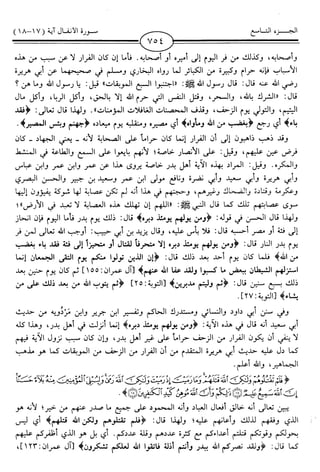 الجزء التاسع
٧٥٤
سورة الأنفال آية (١٧-١٨)
وأصحابه، وكذلك من فر اليوم إلى أميره أو أصحابه. فأما إن كان الفرار لا عن سبب من هذه
الأسباب فإنه حرام وكبيرة من الكبائر لما رواه البخاري ومسلم في صحيحهما عن أبي هريرة
رضي الله عنه قال: قال رسول الله ﷺ: «اجتنبوا السبع الموبقات» قيل: يا رسول الله وما هن؟
قال: «الشرك بالله، والسحر، وقتل النفس التي حرم الله إلا بالحق، وأكل الربا، وأكل مال
اليتيم، والتولي يوم الزحف، وقذف المحصنات الغافلات المؤمنات». ولهذا قال تعالى: ﴿فقد
باء﴾ أي رجع ﴿بغضب من الله ومأواه﴾ أي مصيره ومنقلبه يوم ميعاده ﴿جهنم وبئس المصير﴾.
وقد ذهب ذاهبون إلى أن الفرار إنما كان حراماً على الصحابة لأنه - يعني الجهاد - كان
فرض عين عليهم، وقيل: على الأنصار خاصة؛ لأنهم بايعوا على السمع والطاعة في المنشط
والمكره. وقيل: المراد بهذه الآية أهل بدر خاصة يروى هذا عن عمر وابن عمر وابن عباس
وأبي هريرة وأبي سعيد وأبي نضرة ونافع مولى ابن عمر وسعيد بن جبير والحسن البصري
وعكرمة وقتادة والضحاك وغيرهم، وحجتهم في هذا أنه لم تكن عصابة لها شوكة يفيؤون إليها
سوى عصابتهم تلك كما قال النبي ﷺ: «اللهم إن تهلك هذه العصابة لا تعبد في الأرض»؛
ولهذا قال الحسن في قوله: ﴿ومن يولهم يومئذ دبره﴾ قال: ذلك يوم بدر فأما اليوم فإن انحاز
إلى فئة أو مصر أحسبه قال: فلا بأس عليه، وقال يزيد بن أبي حبيب: أوجب الله تعالى لمن فر
يوم بدر النار قال: ﴿ومن يولهم يومئذ دبره إلا متحرفاً لقتال أو متحيزاً إلى فئة فقد باء بغضب
من الله﴾ فلما كان يوم أحد بعد ذلك قال: ﴿إن الذين تولوا منكم يوم التقى الجمعان إنما
استزلهم الشيطان ببعض ما كسبوا ولقد عفا الله عنهم﴾ [آل عمران: ١٥٥] ثم كان يوم حنين بعد
ذلك بسبع سنين قال: ﴿ثم وليتم مدبرين﴾ [التوبة: ٢٥] ﴿ثم يتوب الله من بعد ذلك على من
يشاء﴾ [التوبة: ٢٧].
وفي سنن أبي داود والنسائي ومستدرك الحاكم وتفسير ابن جرير وابن مردويه من حديث
أبي سعيد أنه قال في هذه الآية: ﴿ومن يولهم يومئذ دبره﴾ إنما أنزلت في أهل بدر، وهذا كله
لا ينفي أن يكون الفرار من الزحف حراماً على غير أهل بدر، وإن كان سبب نزول الآية فيهم
كما دل عليه حديث أبي هريرة المتقدم من أن الفرار من الزحف من الموبقات كما هو مذهب
الجماهير، والله أعلم.
﴿فَلَمْ تَقْتُلُوهُمْ وَلَٰكِنَّ اللَّهَ قَتَلَهُمْ وَمَا رَمَيْتَ إِذْ رَمَيْتَ وَلَٰكِنَّ اللَّهَ رَمَىٰ وَلِيُبْلِيَ الْمُؤْمِنِينَ مِنْهُ بَلَاءً حَسَنًا
إِنَّ اللَّهَ سَمِيعٌ عَلِيمٌ ۝ ذَٰلِكُمْ وَأَنَّ اللَّهَ مُوهِنُ كَيْدِ الْكَافِرِينَ ۝﴾.
يبين تعالى أنه خالق أفعال العباد وأنه المحمود على جميع ما صدر عنهم من خير؛ لأنه هو
الذي وفقهم لذلك وأعانهم عليه؛ ولهذا قال: ﴿فلم تقتلوهم ولكن الله قتلهم﴾ أي ليس
بحولكم وقوتكم قتلتم أعداءكم مع كثرة عددهم وقلة عددكم، أي بل هو الذي أظفركم عليهم
كما قال: ﴿ولقد نصركم الله ببدر وأنتم أذلة فاتقوا الله لعلكم تشكرون﴾ [آل عمران: ١٢٣]،